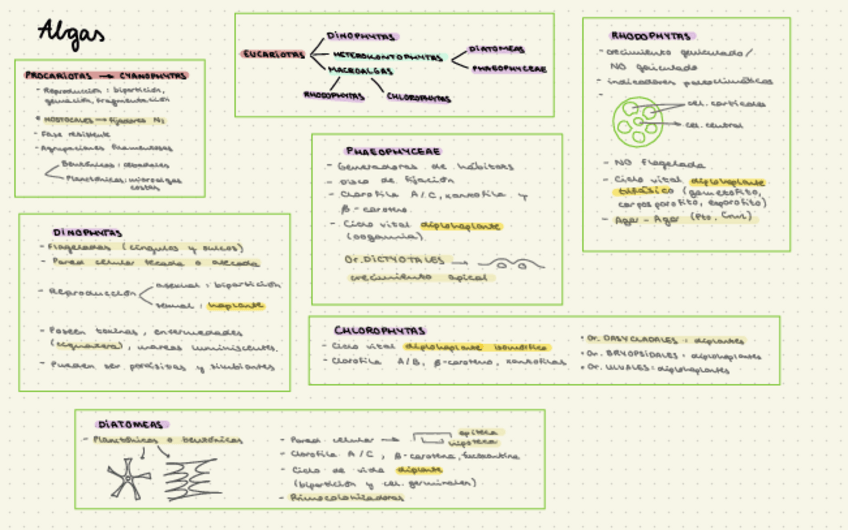 Algas
PROCARIOTAS → CYANOPHYTAS
- Reproducción: bipartición,
gemación, fragmentación
• NOSTOCALES → fijadores N₂
- Fase resistente
- Agrupaciones filamentosas
Bentónicas: cenobiales
Planctónicas: microalgas
costas
EUCARIOTAS
DINOPHYTAS
HETEROKONTOPHYTAS
MACROALGAS
DIATOMEAS
PHAEOPHYCEAE
RHODOPHYTAS
CHLOROPHYTAS
RHODOPHYTAS
- crecimiento geniculado/
NO geniculado
- indicadores paleoclimáticos
-
cel. corticales
cel. central
- NO flagelada
- Ciclo vital diplohaplonte
trifásico (gametofito,
carposporofito, esporofito)
- Agar-Agar (Pto. Cruz)
PHAEOPHYCEAE
- Generadoras de hábitats
- Disco de fijación
- Clorofila A/C, xantofila y
β-caroteno
- Ciclo vital diplohaplonte
(oogamia)
Or. DICTYOTALES →
crecimiento apical
DINOPHYTAS
- Flageladas (cíngulos y sulcos)
- Pared celular tecada o atecada
- Reproducción
asexual: bipartición
sexual: haplonte
- Poseen toxinas, enfermedades
(ciguatera), mareas luminiscentes.
- Pueden ser parásitas y simbiontes
CHLOROPHYTAS
- Ciclo vital diplohaplonte isomórfico
- Clorofila A/B, β-caroteno, xantofilas
• Or. DASYCLADALES: diplontes
• Or. BRYOPSIDALES: diplohaplontes
• Or. ULVALES: diplohaplontes
DIATOMEAS
- Planctónicas o bentónicas
- Pared celular →
epiteca
hipoteca
- Clorofila A/C, β-carotena, fucoxantina
- Ciclo de vida diplonte
(bipartición y cel. germinales)
- Primocolonizadoras